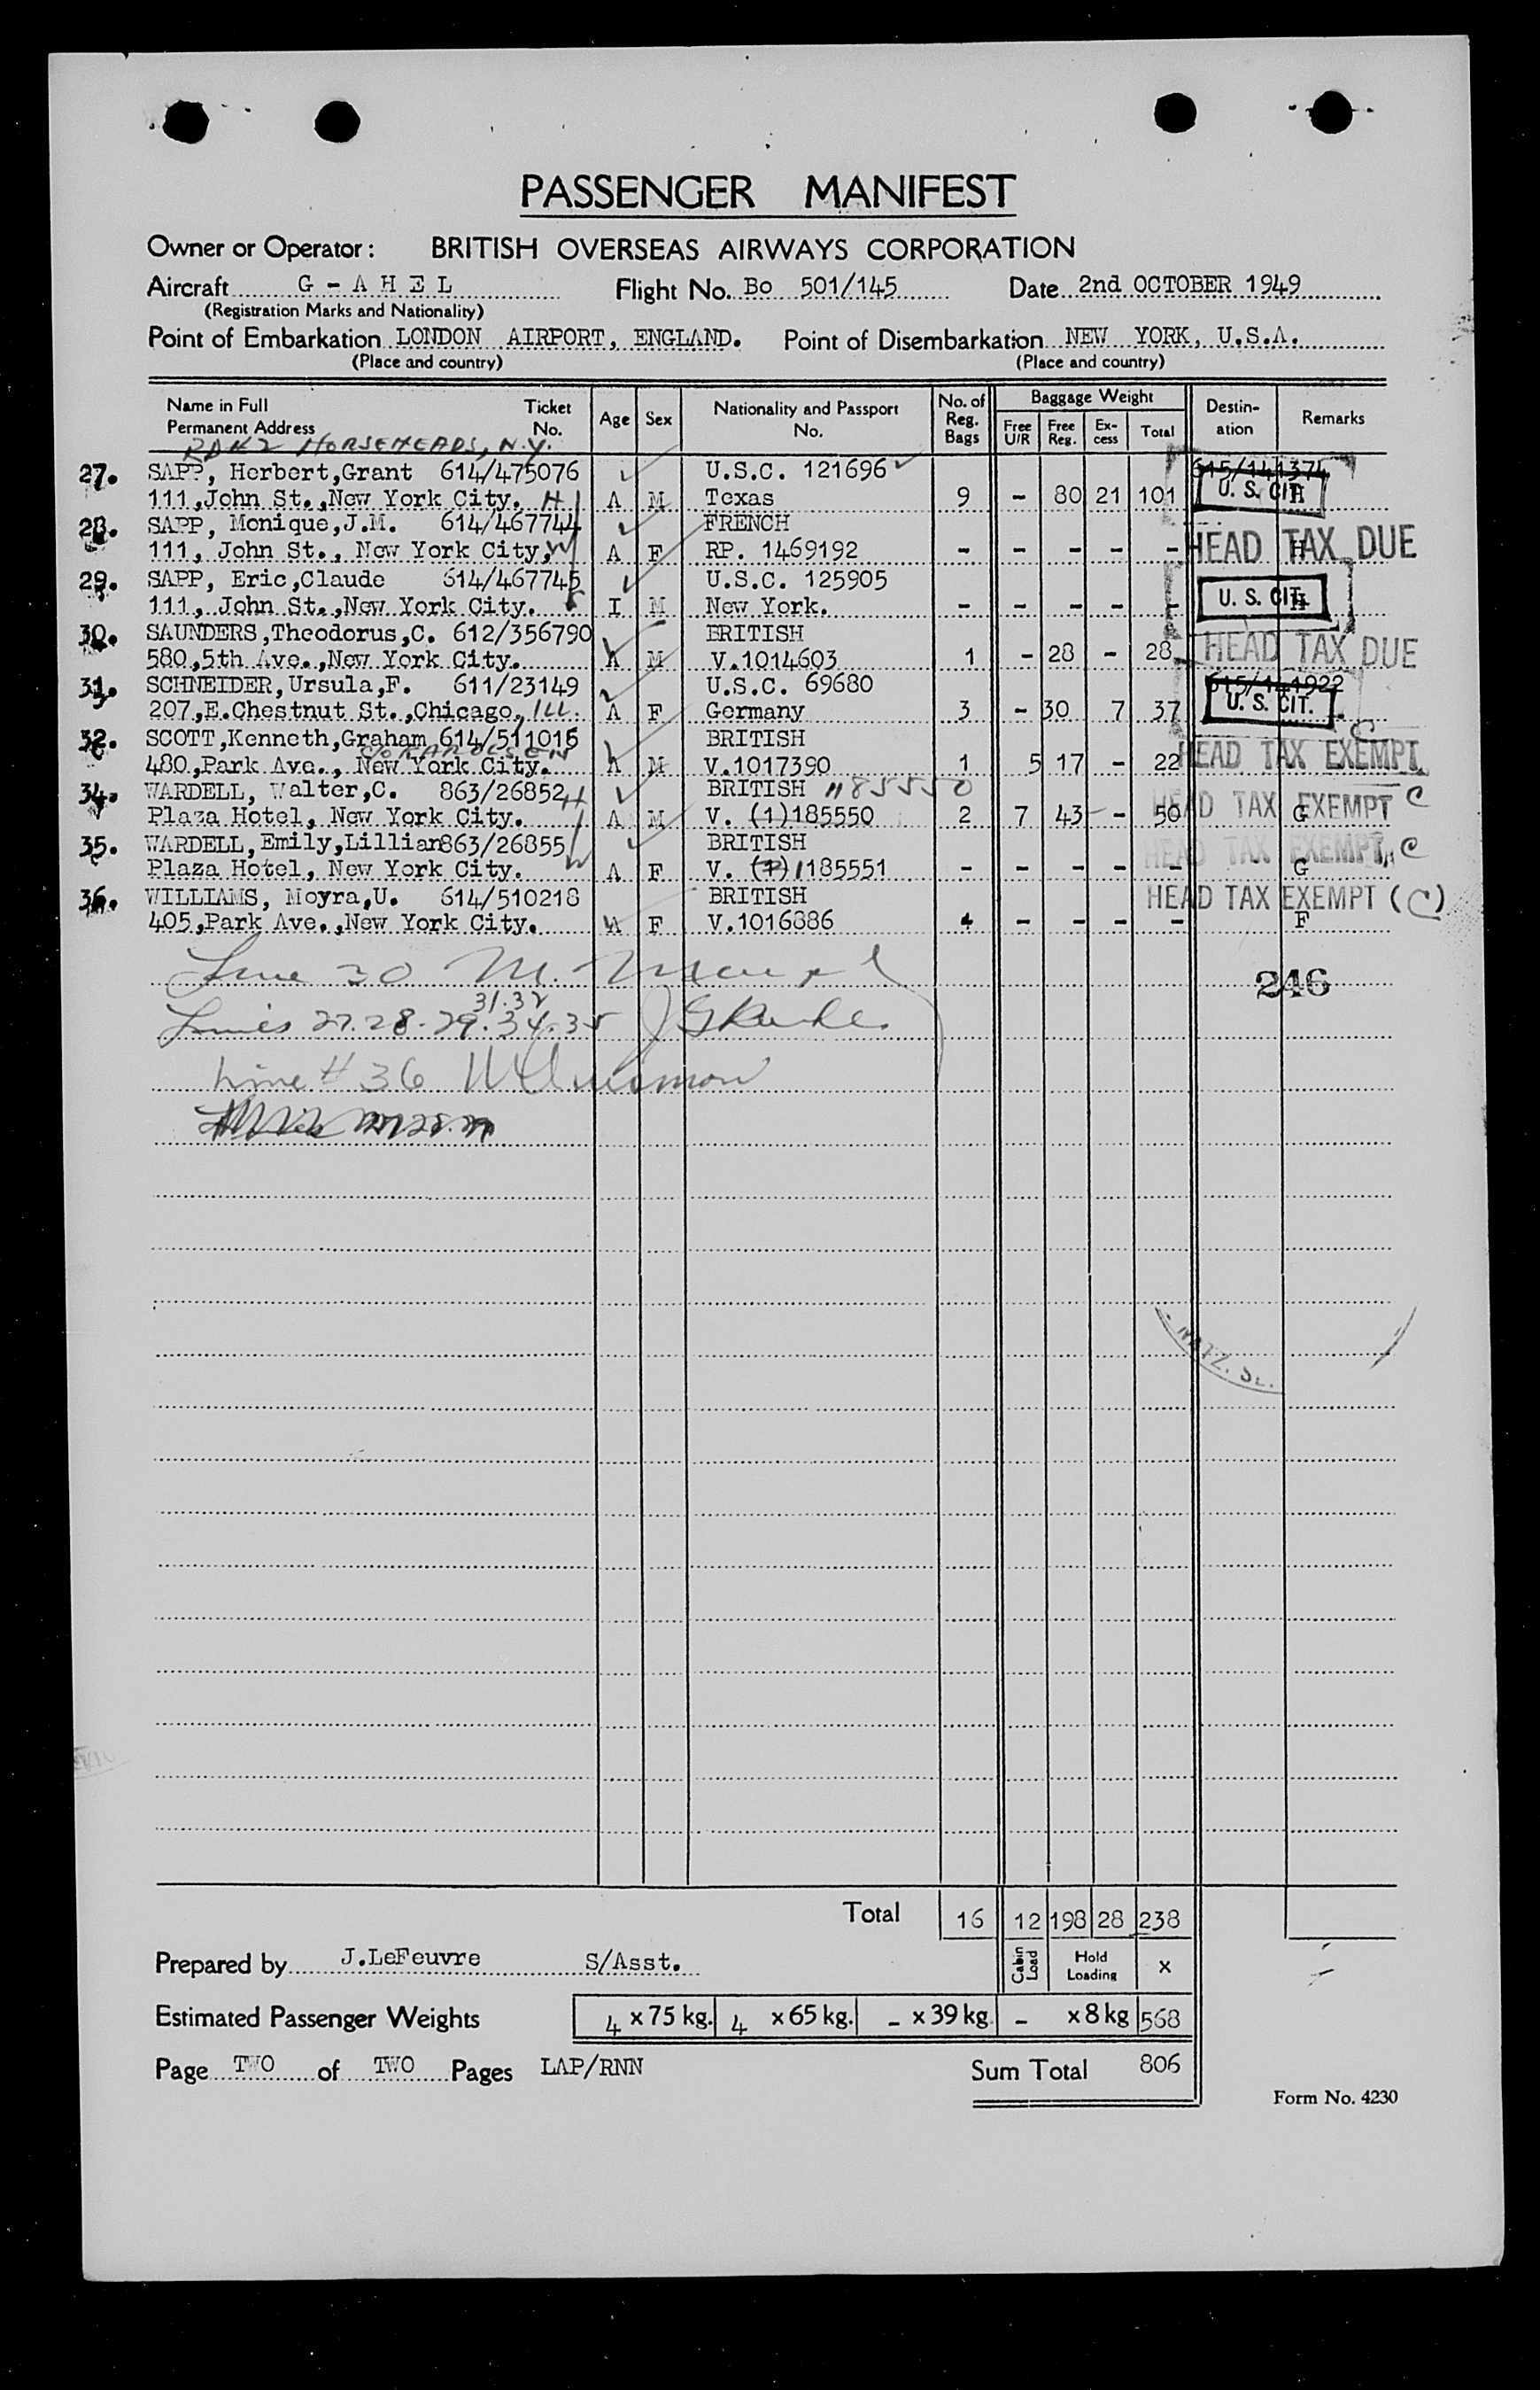 PASSENGER MANIFEST
Owner or Operator: BRITISH OVERSEAS AIRWAYS CORPORATION
Aircraft G - A H E L Flight No. Bo 501/145 Date 2nd OCTOBER 1949
(Registration Marks and Nationality)
Point of Embarkation LONDON AIRPORT, ENGLAND. Point of Disembarkation NEW YORK, U.S.A.
(Place and country) (Place and country)
Name in Full Ticket Age Sex Nationality and Passport No. of Baggage Weight Destin- Remarks
Permanent Address No. No. Reg. Bags Free U/R Free Reg. Ex-cess Total ation
HORSEHEADS, N.Y.
27. SAPP, Herbert,Grant 614/475076 U.S.C. 121696 615/141374
111,John St.,New York City. H A M Texas 9 - 80 21 101 U. S. CIT.
28. SAPP, Monique,J.M. 614/467744 FRENCH
111, John St., New York City, W A F RP. 1469192 - - - - - HEAD TAX DUE H
29. SAPP, Eric,Claude 614/467745 U.S.C. 125905
111, John St.,New York City. I M New York. - - - - - U. S. CIT. H
30. SAUNDERS,Theodorus,C. 612/356790 BRITISH
580,5th Ave.,New York City. A M V.1014603 1 - 28 - 28 HEAD TAX DUE
31. SCHNEIDER,Ursula,F. 611/23149 U.S.C. 69680 615/141922
207,E.Chestnut St.,Chicago, ILL. A F Germany 3 - 30 7 37 U. S. CIT.
32. SCOTT,Kenneth,Graham 614/511015 BRITISH C
480,Park Ave., New York City. A M V.1017390 1 5 17 - 22 HEAD TAX EXEMPT
34. WARDELL, Walter,C. 863/26852 H BRITISH 1185550
Plaza Hotel, New York City. A M V. (1)185550 2 7 43 - 50 HEAD TAX EXEMPT C G
35. WARDELL,Emily,Lillian863/26855 BRITISH HEAD TAX EXEMPT C
Plaza Hotel, New York City. W A F V. (1)1185551 - - - - - G
36. WILLIAMS, Moyra,U. 614/510218 BRITISH HEAD TAX EXEMPT (C)
405,Park Ave.,New York City. A F V.1016886 - - - - F
Line 30 M.
246
31.32
Lines 27.28.29.34.35
Line # 36
NATZ.
Total 16 12 198 28 238
Prepared by J.LeFeuvre S/Asst. Cabin Load Hold Loading x
Estimated Passenger Weights 4 x 75 kg. 4 x 65 kg. - x 39 kg. - x 8 kg 568
Page TWO of TWO Pages LAP/RNN Sum Total 806
Form No. 4230